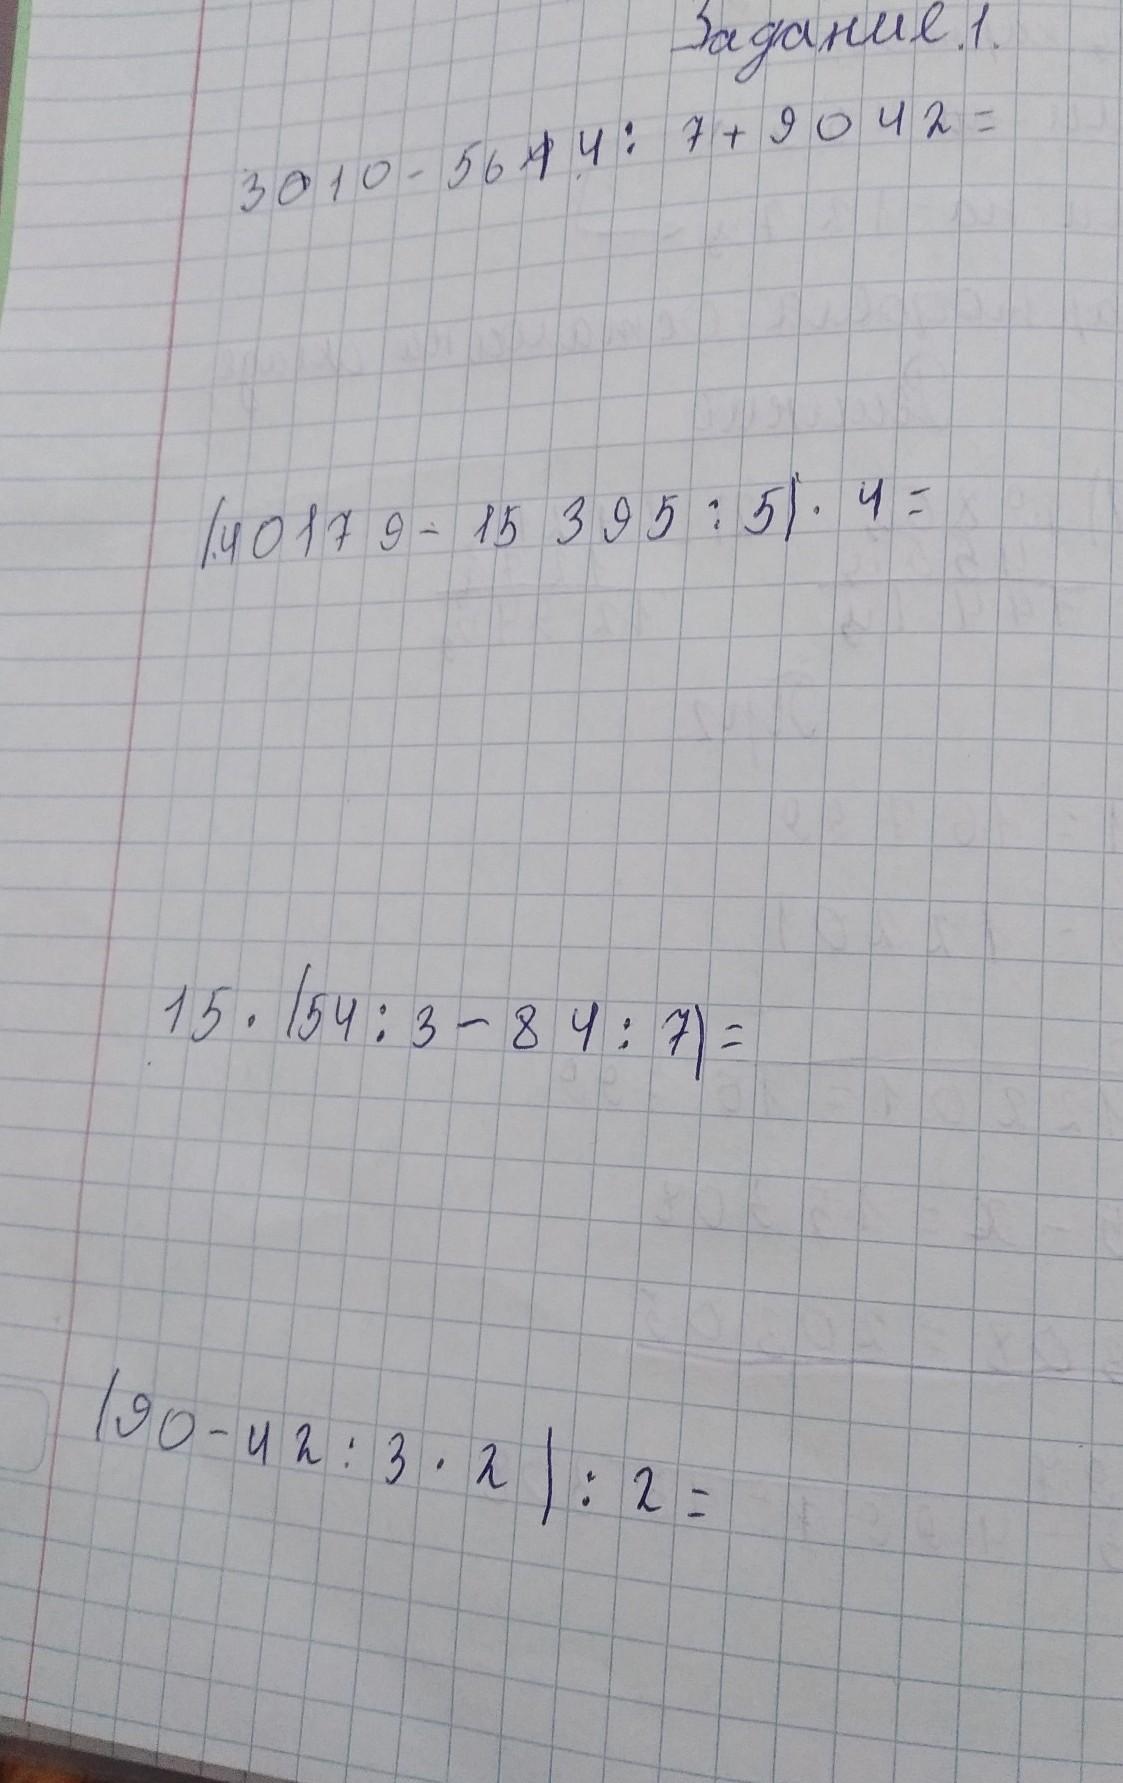 Задание.1.
3010-5614:7+9042=
(40179-15395:5)·4=
15·(54:3-84:7)=
(90-42:3·2):2=